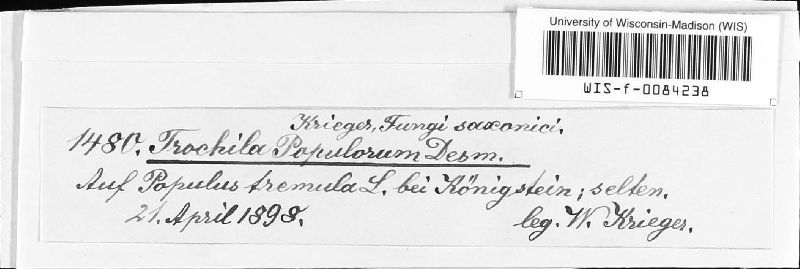 University of Wisconsin-Madison (WIS)
WIS-f-0084238
Krieger, Fungi saxonici.
1480. Trochila Populorum Desm.
Auf Populus tremula L. bei Königstein; selten.
21. April 1898.
leg. W. Krieger.